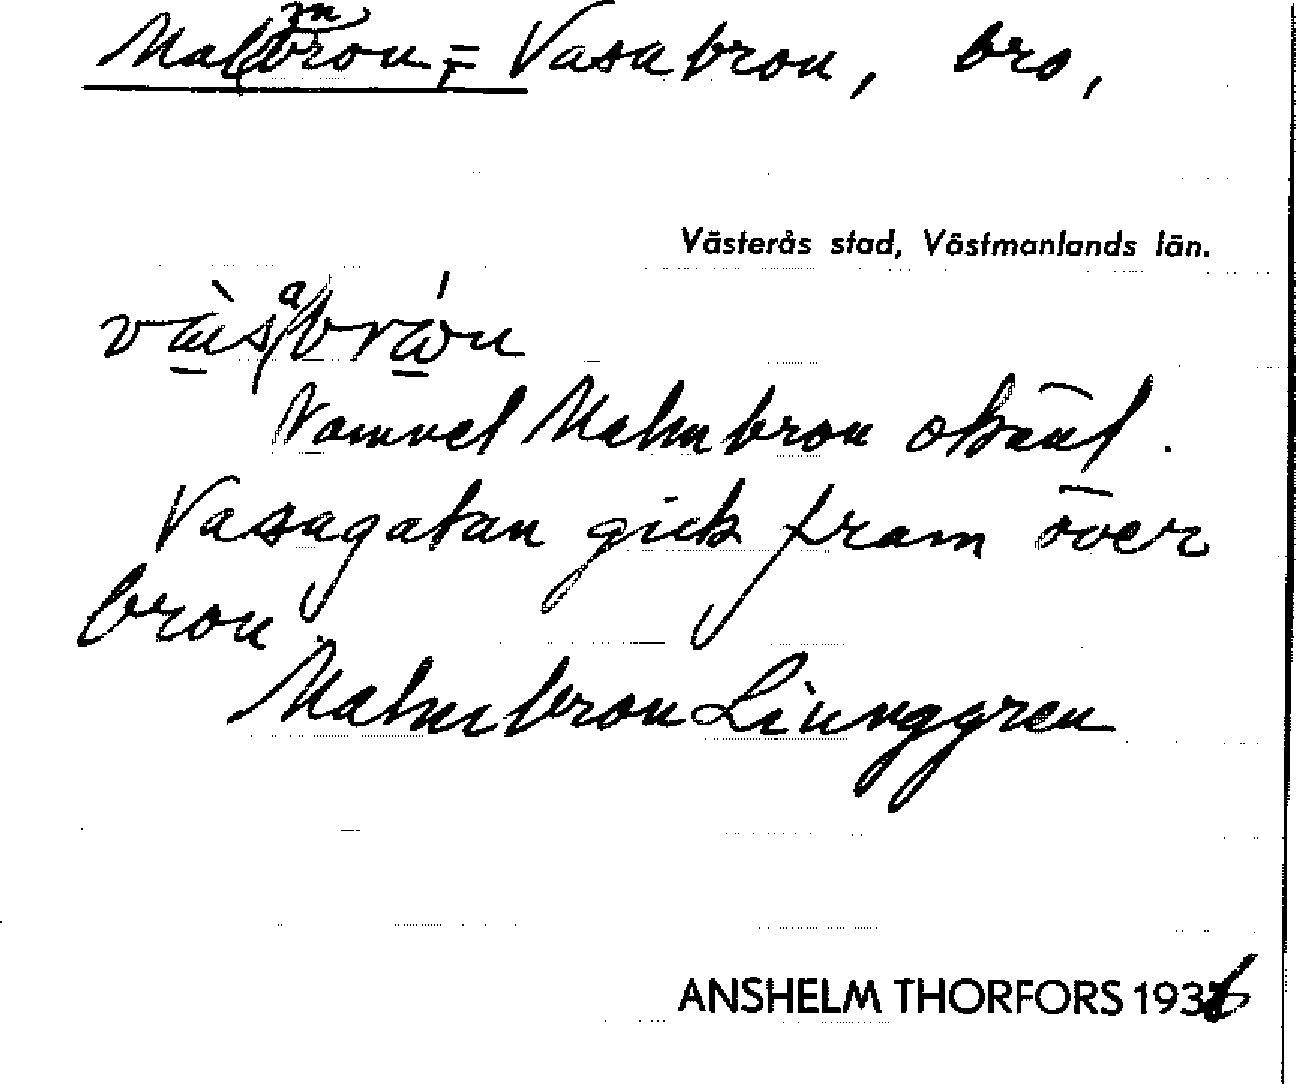 Malmbron, = Vasabron, bro,
Västerås stad, Västmanlands län.
Namnet Malmbron okänt.
Vasagatan gick fram över
bron
Malmbron Liunggren
ANSHELM THORFORS 1936